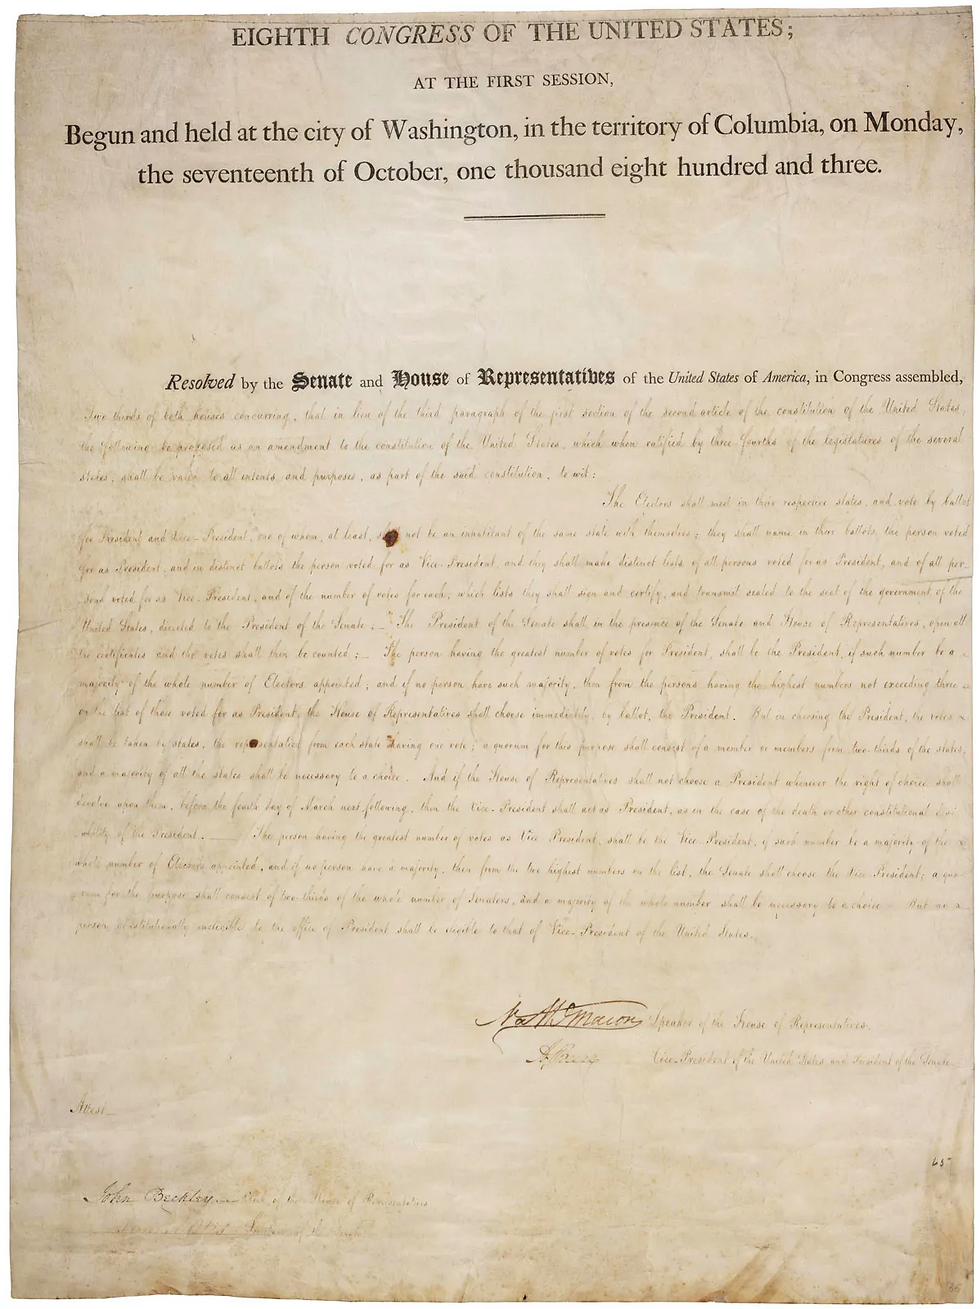 EIGHTH CONGRESS OF THE UNITED STATES;
AT THE FIRST SESSION,
Begun and held at the city of Washington, in the territory of Columbia, on Monday,
the seventeenth of October, one thousand eight hundred and three.
Resolved by the Senate and House of Representatives of the United States of America, in Congress assembled,
Two thirds of both houses concurring, that in lieu of the third paragraph of the first section of the second article of the constitution of the United States,
the following be proposed as an amendment to the constitution of the United States, which when ratified by three-fourths of the legislatures of the several
states, shall be valid to all intents and purposes, as part of the said constitution, to wit:
The Electors shall meet in their respective states, and vote by ballot
for President and Vice-President, one of whom, at least, shall not be an inhabitant of the same state with themselves; they shall name in their ballots the person voted
for as President, and in distinct ballots the person voted for as Vice-President, and they shall make distinct lists of all persons voted for as President, and of all per-
sons voted for as Vice-President, and of the number of votes for each, which lists they shall sign and certify, and transmit sealed to the seat of the government of the
United States, directed to the President of the Senate;— The President of the Senate shall, in the presence of the Senate and House of Representatives, open all
the certificates and the votes shall then be counted;— The person having the greatest number of votes for President, shall be the President, if such number be a
majority of the whole number of Electors appointed; and if no person have such majority, then from the persons having the highest numbers not exceeding three
on the list of those voted for as President, the House of Representatives shall choose immediately, by ballot, the President. But in choosing the President, the votes
shall be taken by states, the representation from each state having one vote; a quorum for this purpose shall consist of a member or members from two-thirds of the states,
and a majority of all the states shall be necessary to a choice. And if the House of Representatives shall not choose a President whenever the right of choice shall
devolve upon them, before the fourth day of March next following, then the Vice-President shall act as President, as in the case of the death or other constitutional disa-
bility of the President.— The person having the greatest number of votes as Vice President, shall be the Vice President, if such number be a majority of the
whole number of Electors appointed, and if no person have a majority, then from the two highest numbers on the list, the Senate shall choose the Vice President; a quo-
rum for the purpose shall consist of two-thirds of the whole number of Senators, and a majority of the whole number shall be necessary to a choice. But no
person constitutionally ineligible to the office of President shall be eligible to that of Vice-President of the United States.
Nathl Macon Speaker of the House of Representatives.
A. Burr Vice-President of the United States, and President of the Senate.
Attest—
65
John Beckley— Clerk of the House of Representatives
Otis Secretary of the Senate